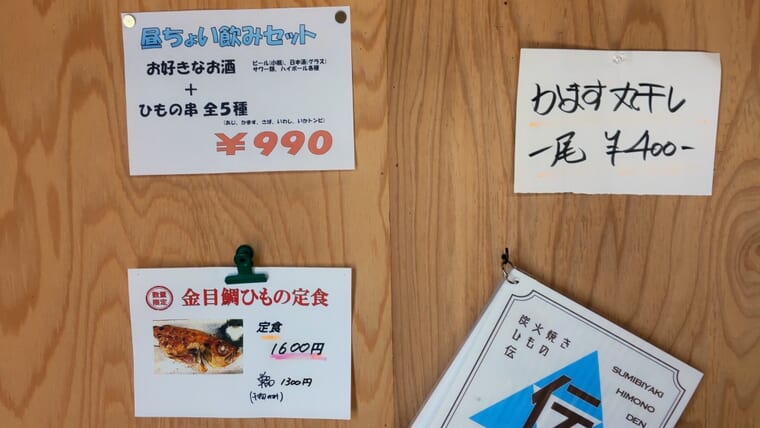 昼ちょい飲みセット
お好きなお酒
ビール(小瓶)、日本酒(グラス)
サワー類、ハイボール各種
+
ひもの串 全5種
(あじ、かます、さば、いわし、いかトンビ)
¥990
かます丸干し
一尾 ¥400-
数量
限定
金目鯛ひもの定食
定食
1600円
1300円
炭火焼き
ひもの
伝
伝
SUMIBIYAKI
HIMONO
DEN